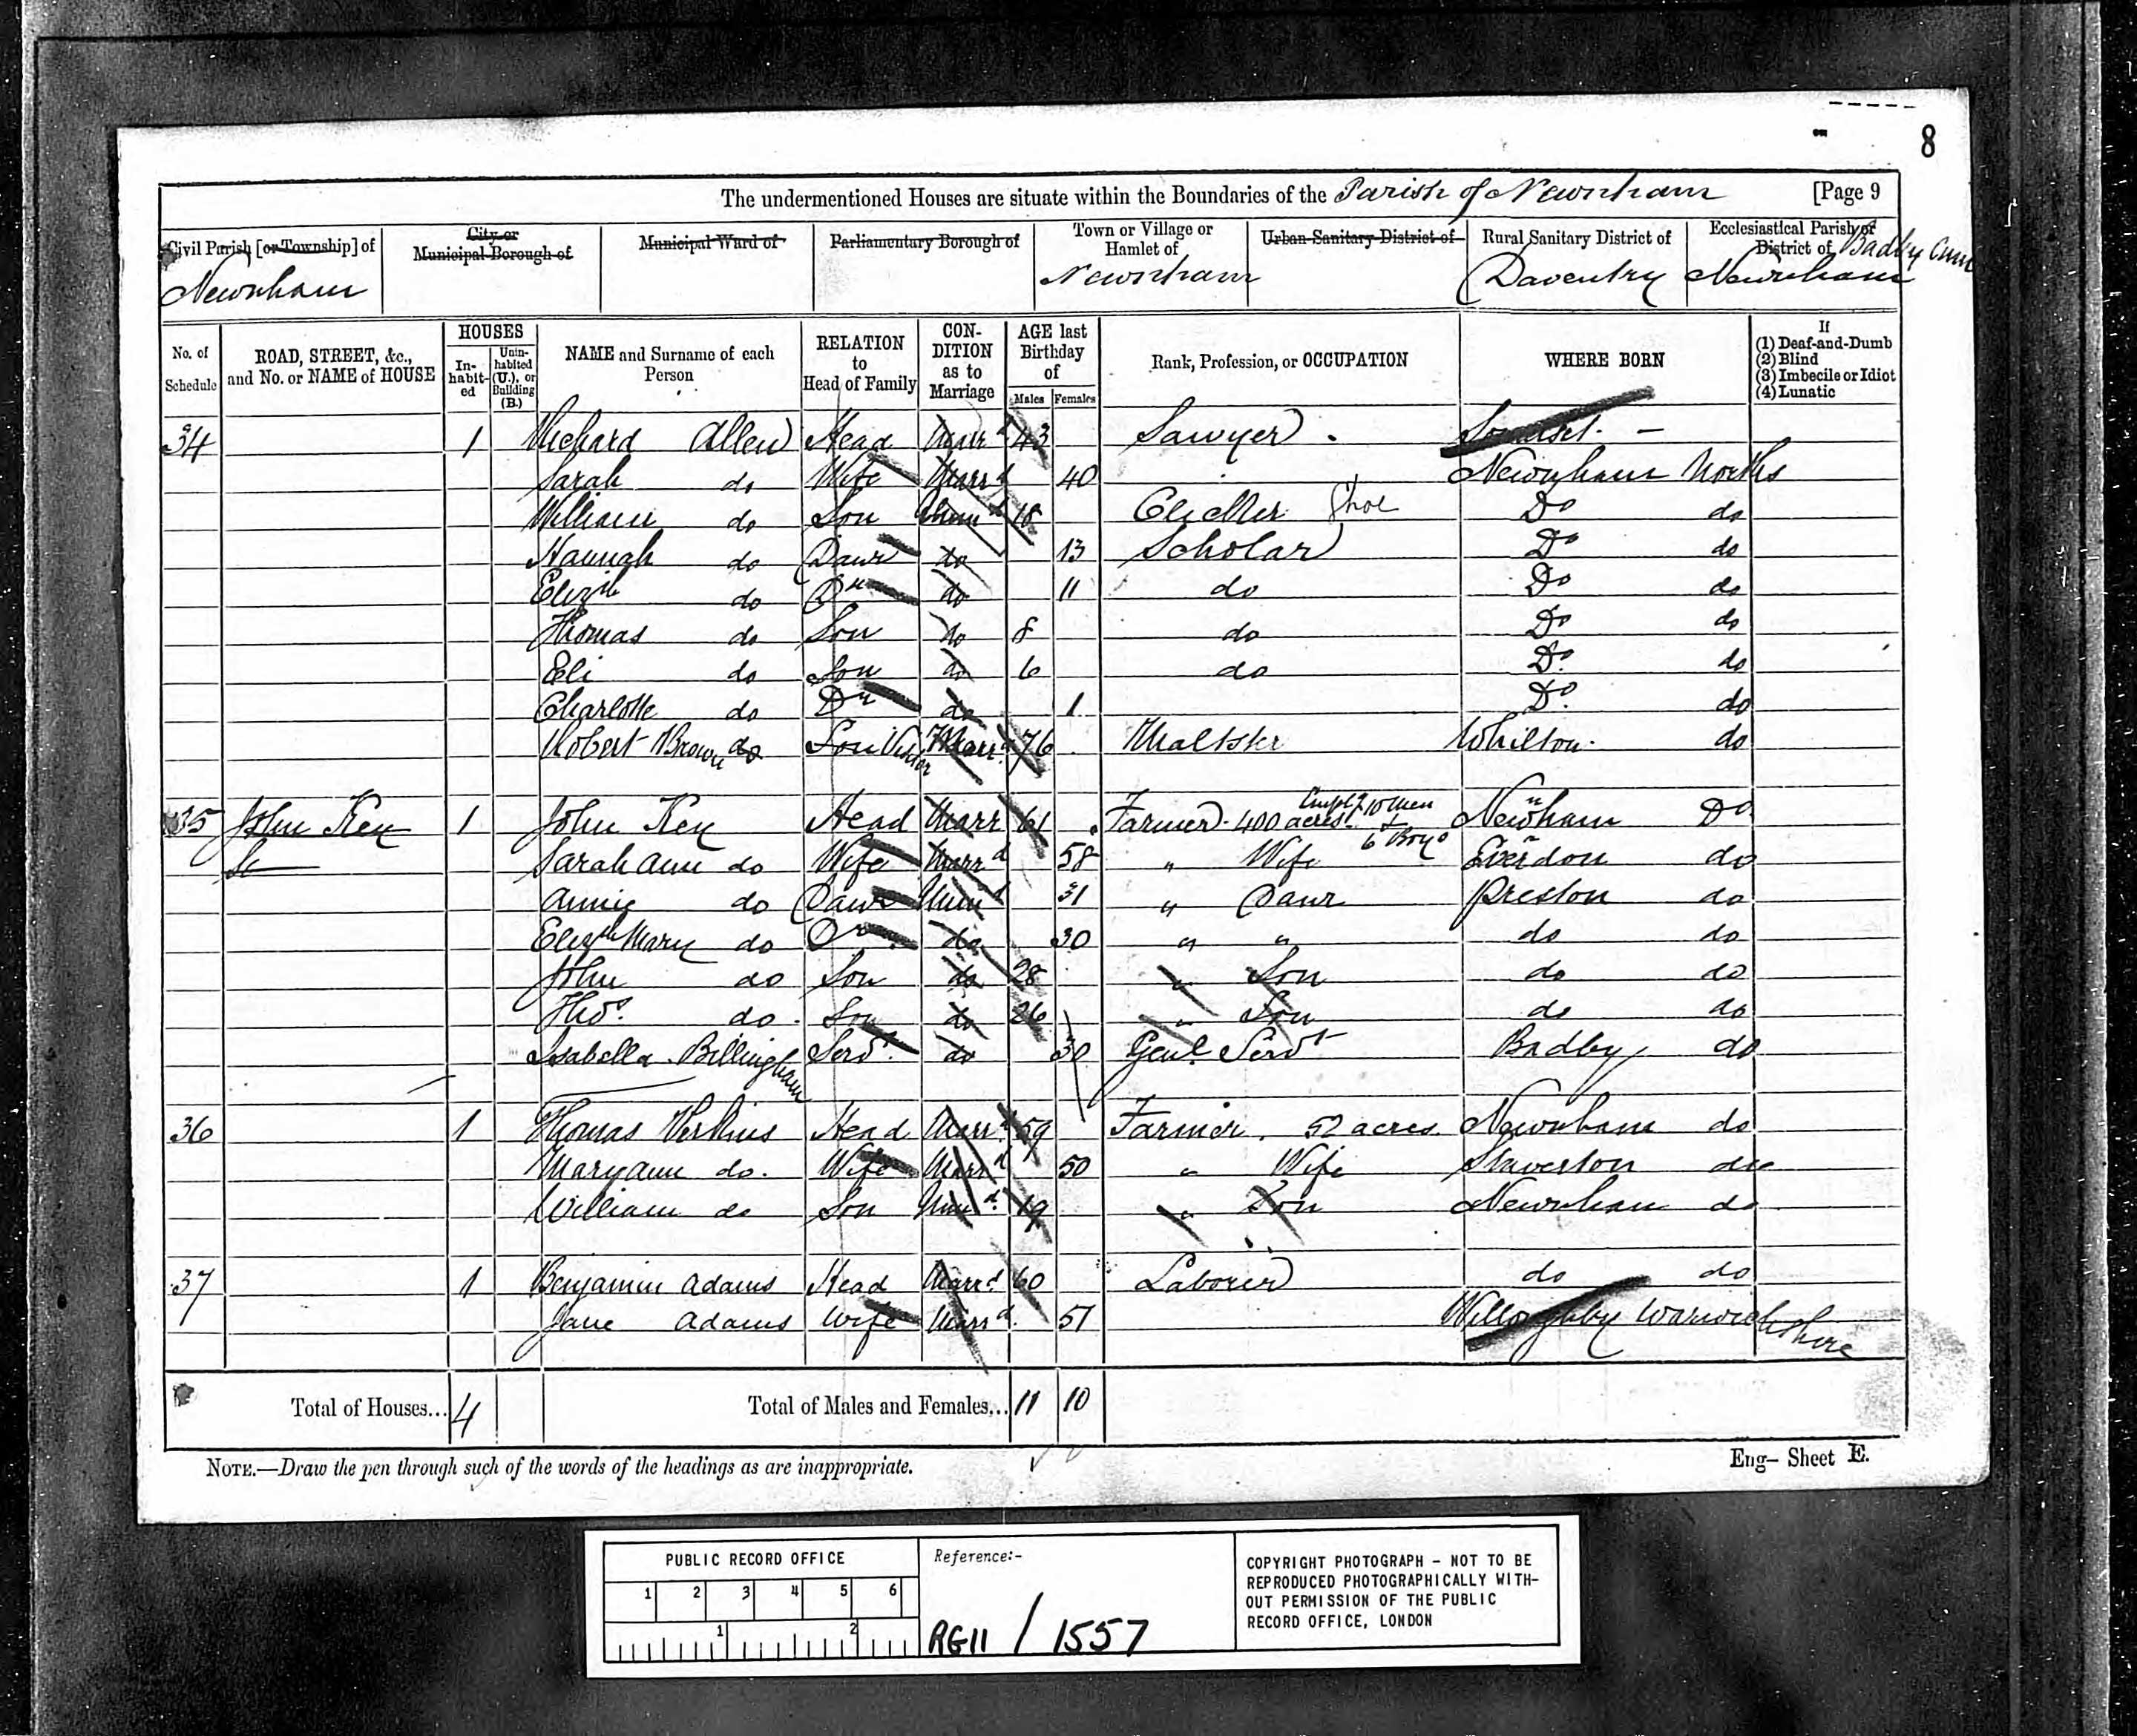 8
The undermentioned Houses are situate within the Boundaries of the Parish of Newnham [Page 9
Civil Parish [or Township] of
Newnham
City or
Municipal Borough of
Municipal Ward of
Parliamentary Borough of
Town or Village or
Hamlet of
Newnham
Urban Sanitary District of
Rural Sanitary District of
Daventry
Ecclesiastical Parish or
District of Badby Cum
Newnham
No. of
Schedule
ROAD, STREET, &c.,
and No. or NAME of HOUSE
HOUSES
In-
habit-
ed
Unin-
habited
(U.), or
Building
(B.)
NAME and Surname of each
Person
RELATION
to
Head of Family
CON-
DITION
as to
Marriage
AGE last
Birthday
of
Males Females
Rank, Profession, or OCCUPATION
WHERE BORN
If
(1) Deaf-and-Dumb
(2) Blind
(3) Imbecile or Idiot
(4) Lunatic
34 1 Richard Allen Head Marrd 43 Sawyer Somerset. -
Sarah do Wife Marrd 40 Newnham North's
William do Son Unmd 18 Clicker Shoe Do do
Hannah do Daur do 13 Scholar Do do
Elizth do Dr do 11 do Do do
Thomas do Son do 8 do Do do
Eli do Son do 6 do Do do
Charlotte do Dr do 1 Do do
Robert Brown do Son Visitor Marrd 76 Maltster Whilton do
35 John Key 1 John Key Head Marr 61 Farmer 400 acres Emplg 10 Men & 6 Boys Newnham Do
St Sarah Ann do Wife Marrd 58 " Wife Everdon do
Annie do Daur Unmd 31 " Daur Preston do
Elizth Mary do Dr do 30 " " do do
John do Son do 28 " Son do do
Thos. do Son do 26 " Son do do
Isabella Billingham Servt do 30 Genl Servt Badby do
36 1 Thomas Perkins Head Marrd 59 Farmer. 52 acres. Newnham do
Maryann do. Wife Marrd 50 " Wife Staverton do
William do Son Unmd 19 " Son Newnham do
37 1 Benjamin Adams Head Marrd 60 Laborer do do
Jane Adams Wife Marrd. 51 Willoughby Warwickshire
Total of Houses... 4 Total of Males and Females... 11 10
NOTE.—Draw the pen through such of the words of the headings as are inappropriate.
Eng- Sheet E.
PUBLIC RECORD OFFICE
1 2 3 4 5 6
1 2
Reference:-
RG11 / 1557
COPYRIGHT PHOTOGRAPH - NOT TO BE
REPRODUCED PHOTOGRAPHICALLY WITH-
OUT PERMISSION OF THE PUBLIC
RECORD OFFICE, LONDON